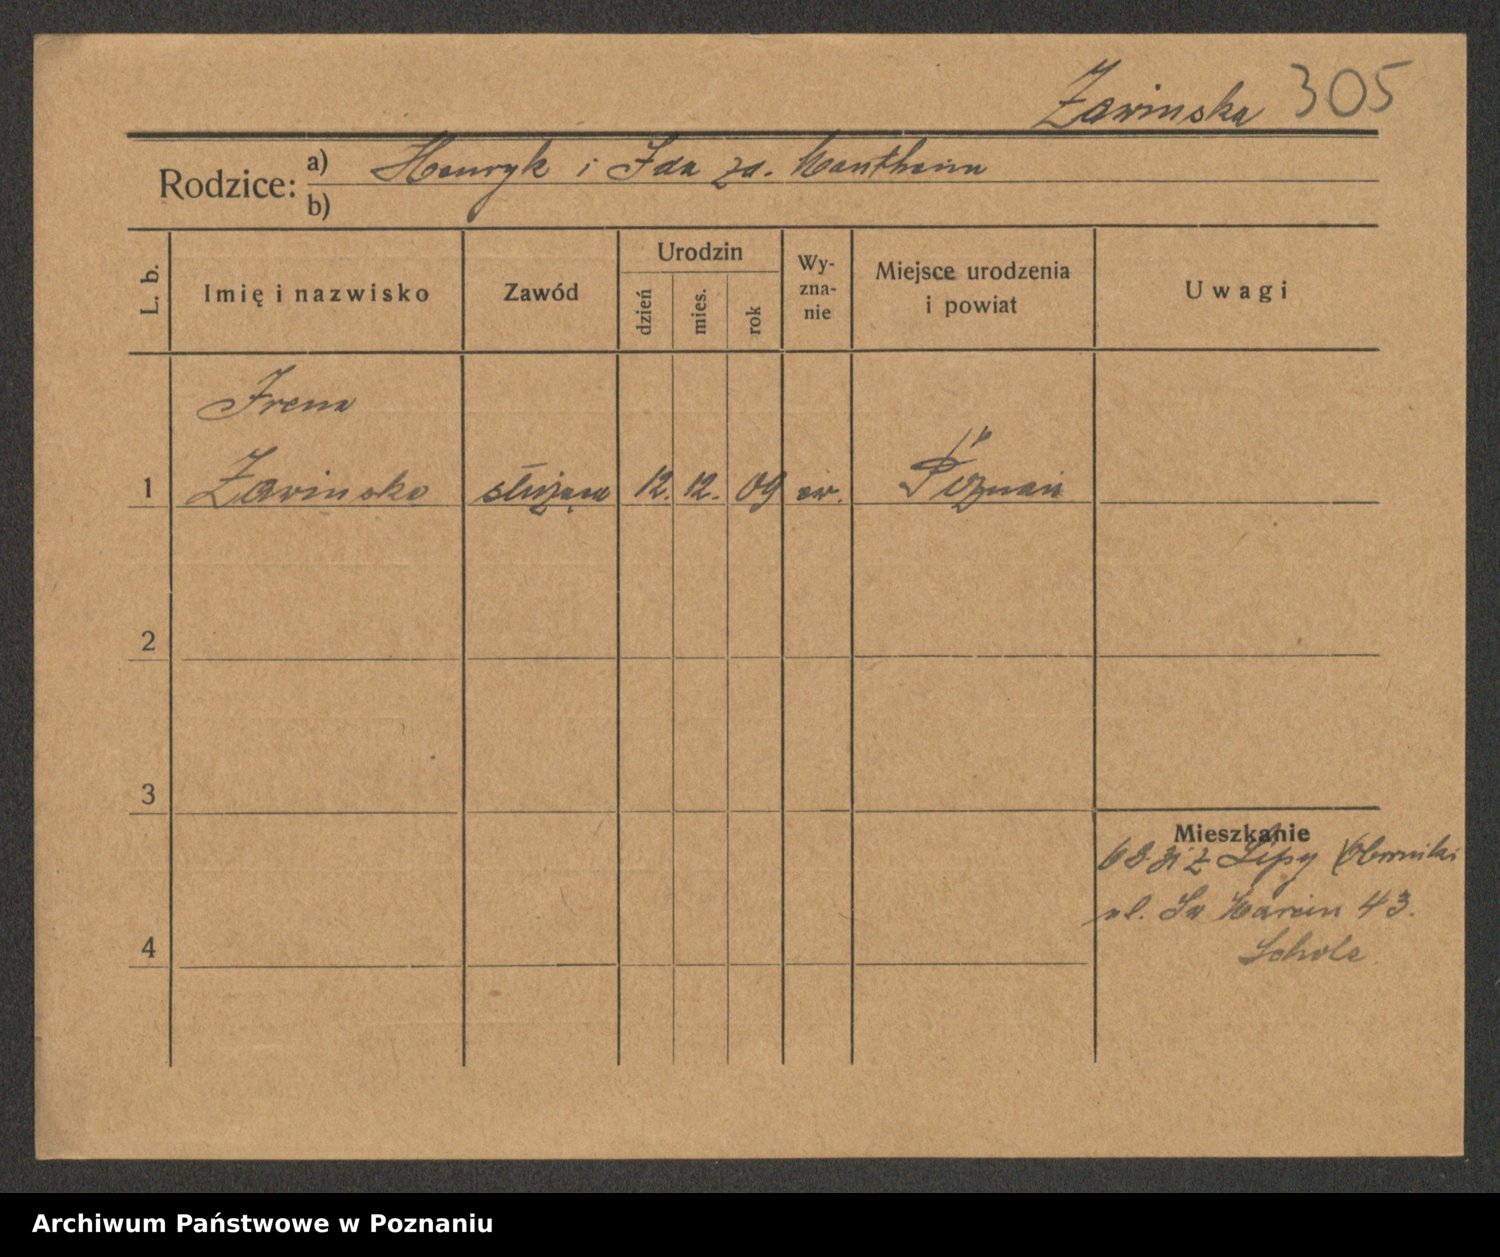 Zawinska 305
Rodzice: a) Henryk i Ida za. Mantheim
b)
L. b. Imię i nazwisko Zawód Urodzin dzień mies. rok Wy-zna-nie Miejsce urodzenia i powiat Uwagi
Irena
1 Zawinska służąca 12. 12. 09 ew. Poznań
2
3
Mieszkanie
z Lipy Oborniki
ul. Św Marcin 43.
4 Scholz
Archiwum Państwowe w Poznaniu